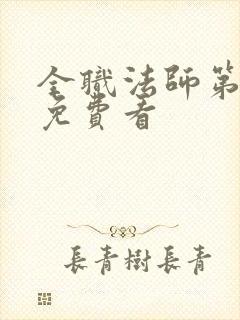 全職法師第
免費看
長青樹長青